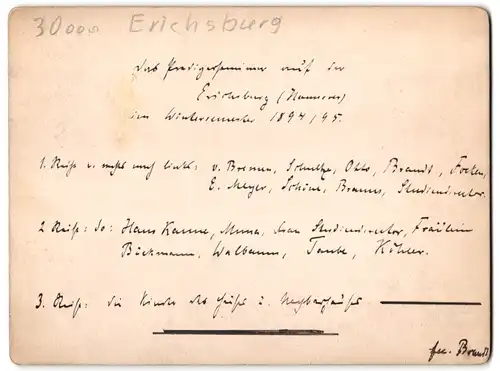 30000 Erichsburg
Das Predigerseminar auf der
Erichsburg (Hannover)
im Wintersemester 1894/95.
1. Reihe v. rechts nach links: v. Bremen, Schultze, Otto, Brandt, Focken,
E. Meyer, Schöne, Brauns, Studiendirector.
2 Reihe: do: Hans Kanne, Munna, Frau Studiendirector, Fräulein
Böckmann, Walbaum, Taube, Köhler.
3. Reihe: die Kinder des Hauses u. Nachbarhauses
fec. Brandt